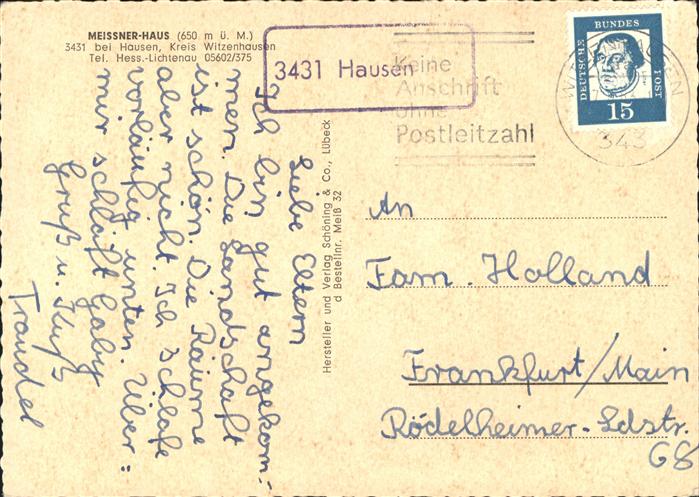 MEISSNER-HAUS (650 m ü. M.)
3431 bei Hausen, Kreis Witzenhausen
Tel. Hess.-Lichtenau 05602/375
3431 Hausen
Keine
Anschrift
ohne
Postleitzahl
DEUTSCHE
BUNDES
POST
15
343
Liebe Eltern
Ich bin gut angekom-
men. Die Landschaft
ist schön. Die Räume
aber nicht. Ich schlafe
vorläufig unten. Über=
mir schläft Gaby
Gruß u. Kuß
Traudel
Hersteller und Verlag Schöning & Co., Lübeck
d Bestellnr. Meiß 32
An
Fam. Holland
Frankfurt/Main
Rödelheimer-Ldstr.
68